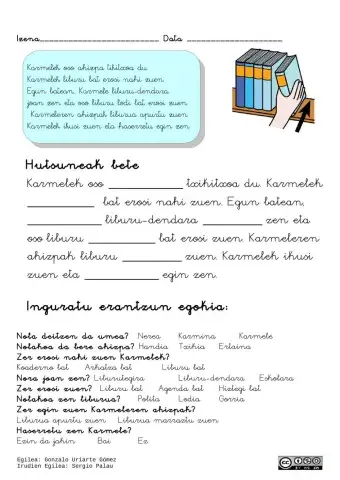 Izena__________________________ Data ____________________
Karmelek oso ahizpa txikitxoa du.
Karmelek liburu bat erosi nahi zuen.
Egun batean, Karmele liburu-dendara
joan zen eta oso liburu lodi bat erosi zuen.
Karmeleren ahizpak liburua apurtu zuen.
Karmelek ikusi zuen eta haserretu egin zen.
Hutsuneak bete
Karmelek oso ____________ txikitxoa du. Karmelek
____________ bat erosi nahi zuen. Egun batean,
____________ liburu-dendara __________ zen eta
oso liburu ___________ bat erosi zuen. Karmeleren
ahizpak liburu __________ zuen. Karmelek ikusi
zuen eta ____________ egin zen.
Inguratu erantzun egokia:
Nola deitzen da umea? Nerea Karmina Karmele
Nolakoa da bere ahizpa? Handia Txikia Ertaina
Zer erosi nahi zuen Karmelek?
Koaderno bat Arkatza bat Liburu bat
Nora joan zen? Liburutegira Liburu-dendara Eskolara
Zer erosi zuen? Liburu bat Agenda bat Hiztegi bat
Nolakoa zen liburua? Polita Lodia Gorria
Zer egin zuen Karmeleren ahizpak?
Liburua apurtu zuen Liburua marraztu zuen
Haserretu zen Karmele?
Ezin da jakin Bai Ez
Egilea: Gonzalo Uriarte Gómez
Irudien Egilea: Sergio Palau